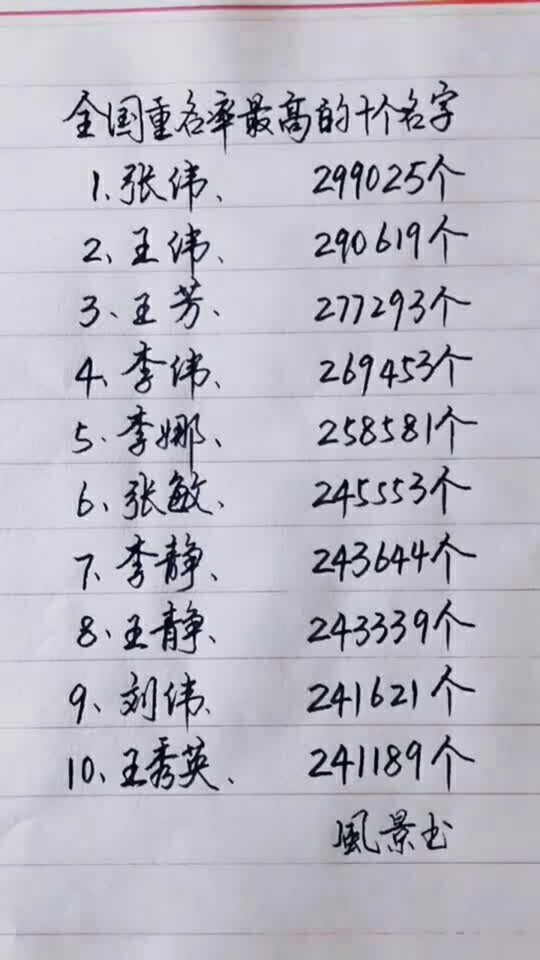 全国重名率最高的十个名字
1、张伟、 299025个
2、王伟、 290619个
3、王芳、 277293个
4、李伟、 269453个
5、李娜、 258581个
6、张敏、 245553个
7、李静、 243644个
8、王静、 243339个
9、刘伟、 241621个
10、王秀英、 241189个
風景书